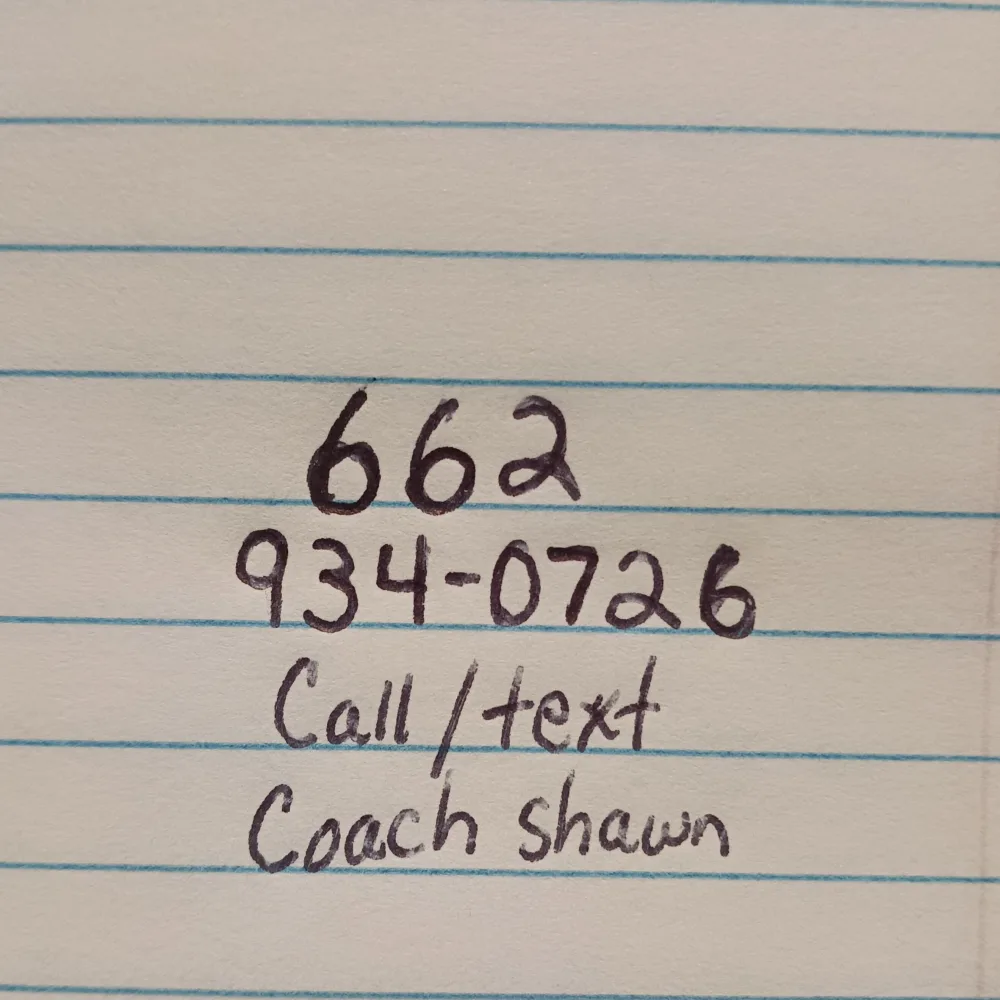 662
934-0726
Call/text
Coach shawn